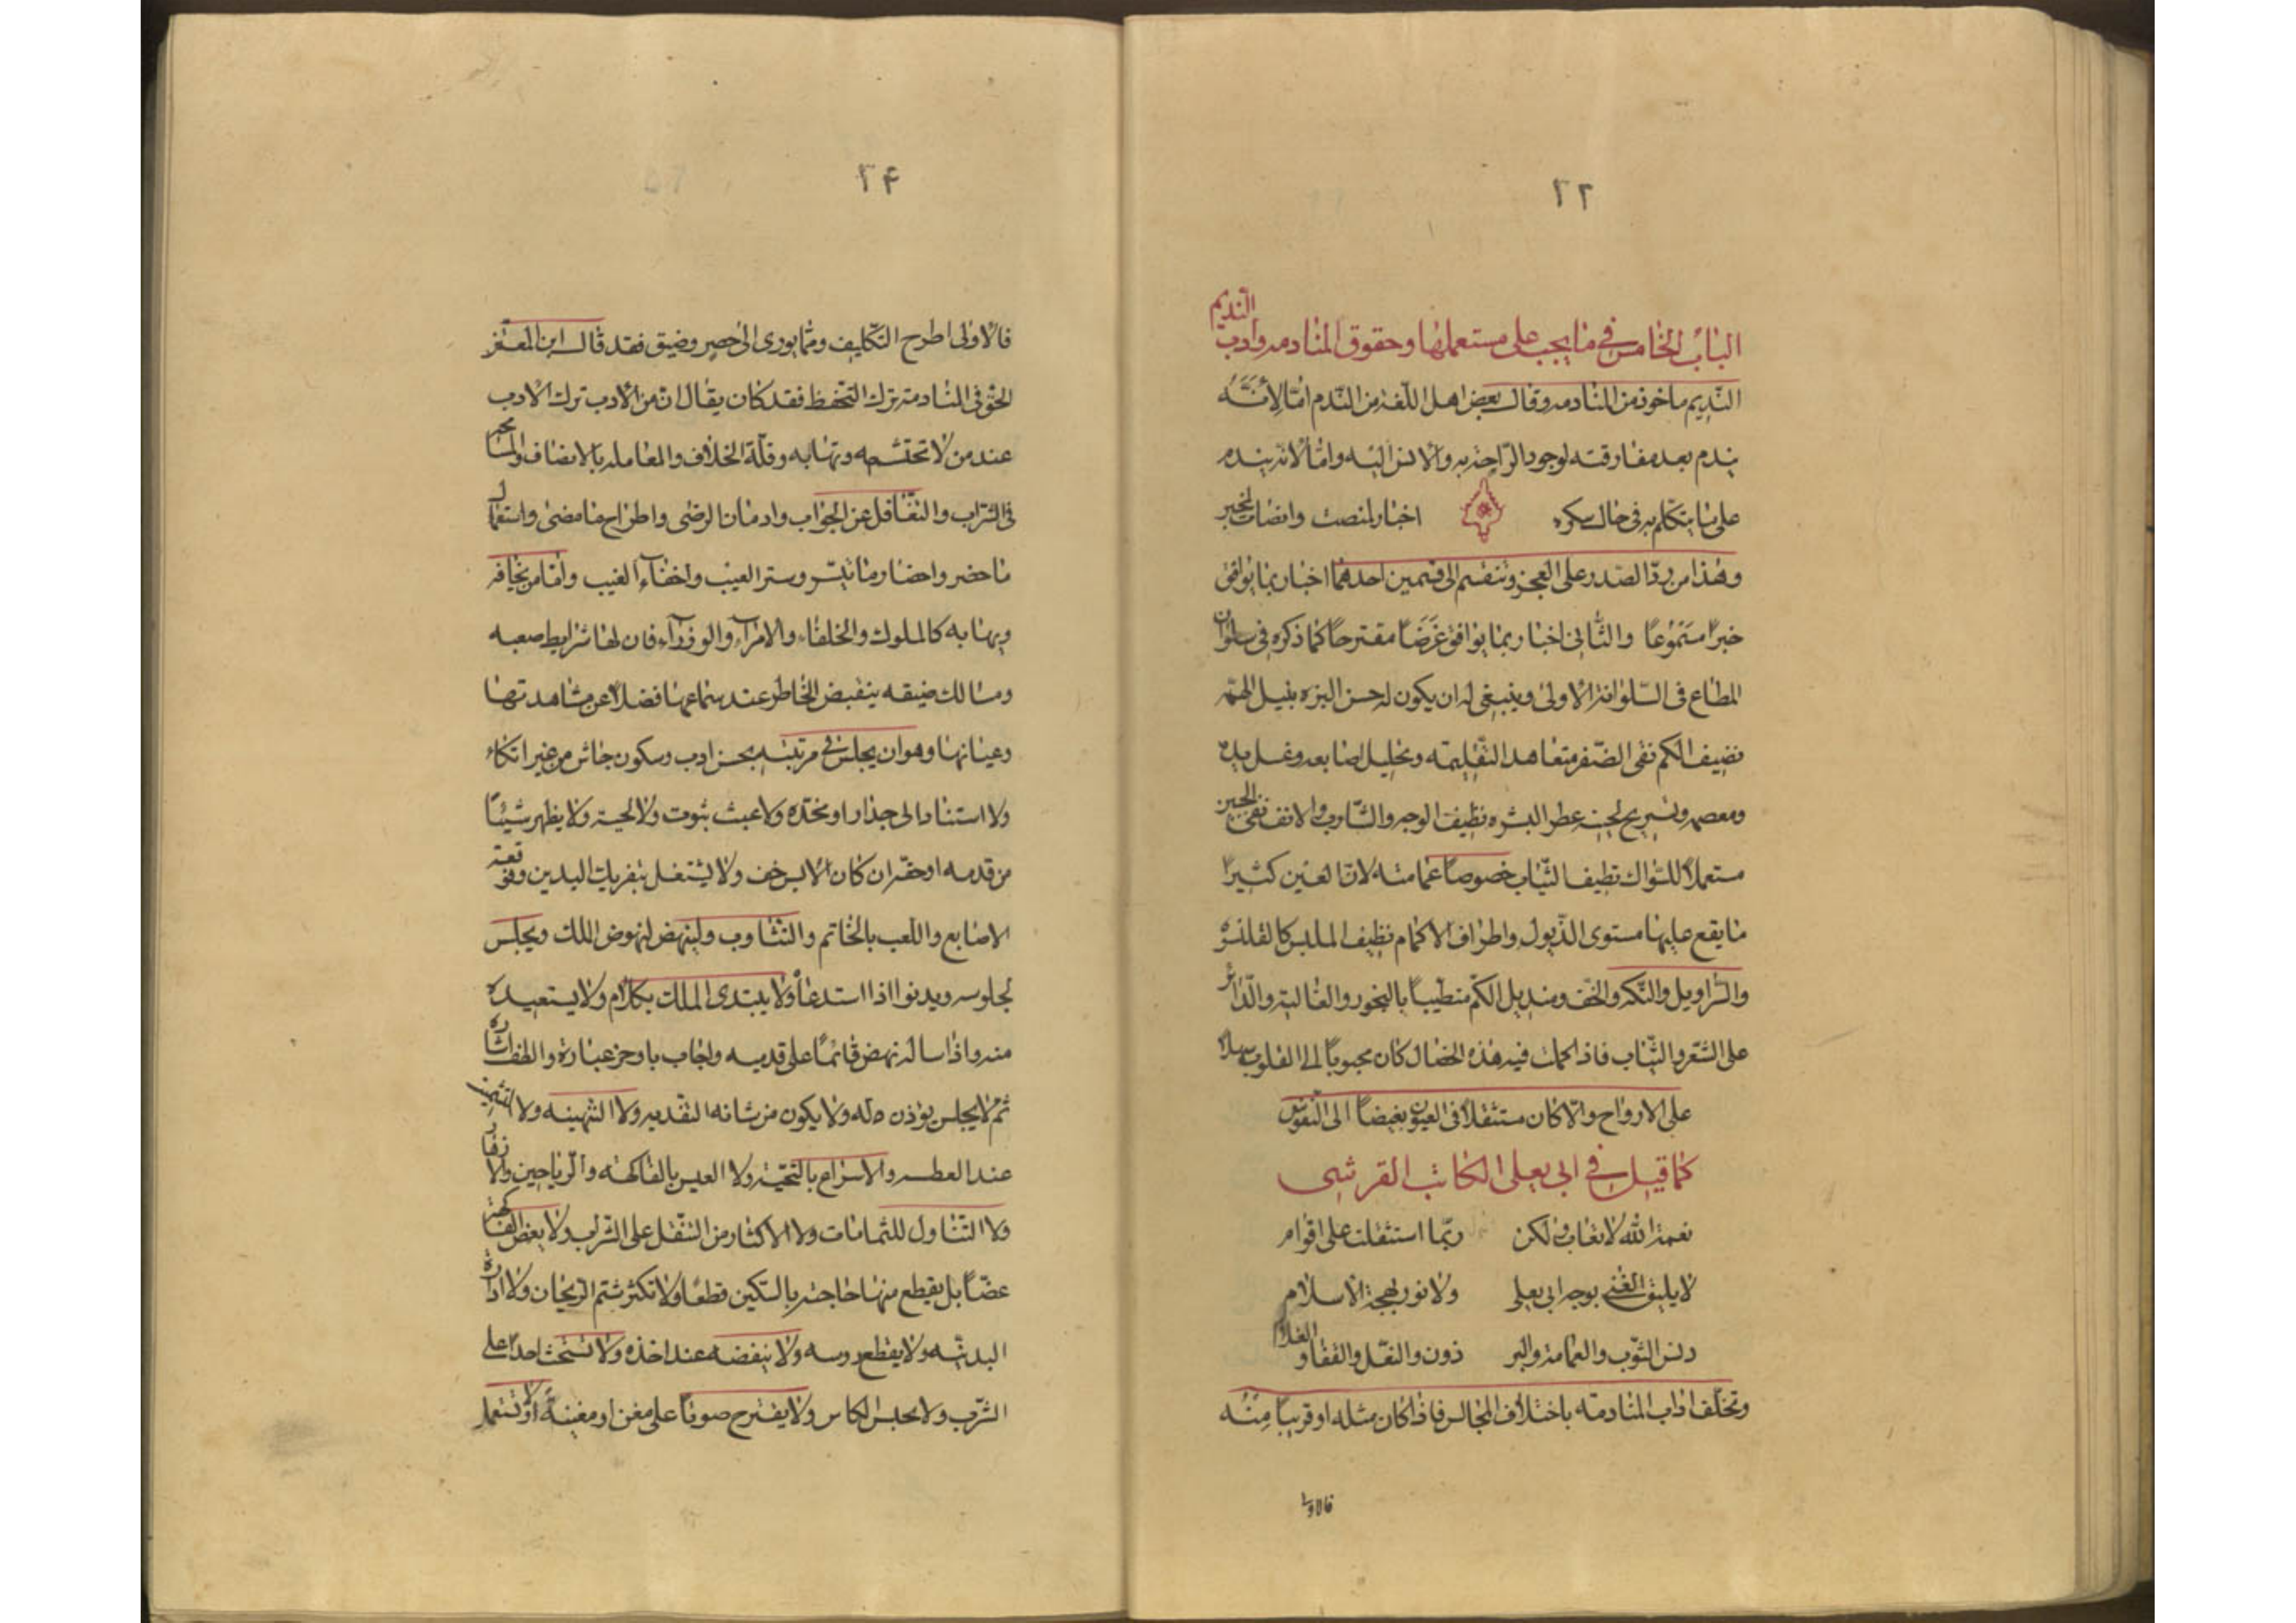 ٢٢
الباب الخامس في ما يجب على مستعملها وحقوق المنادمه وادب النديم
النديم ماخوذ من المنادمه وقال بعض اهل اللغة من الندم امّا لأنَّه
يندم بعد مفارقته لوجود الراحة به والانس اليه وامّا لانه يندم
على ما يتكلم به في حال سكره اخبار لمنصت وانصات لمخبر
وهذا من ردّ الصدر على العجز وتنقسم الى قسمين احدهما اخبار بما يوافق
خبراً مسموعاً والثاني اخبار بما يوافق غَرَضاً مقترحاً كما ذكره في سلوان
المطاع في السلوانة الاولى وينبغي له ان يكون له حسن البزه نبيل الهمّه
نضيف الكم نقي الضفر متعاهد التقليمه وتخليل اصابعه وغسل يده
ومعصمه وتسريح لحيته عطر البشره نظيف الوجه والشارب والانف نقي الجبين
مستعملاً للسواك نظيف الثياب خصوصاً عمامته لانّ العين كثيراً
ما يقع عليها مستوى الذيول واطراف الاكمام نظيف الملبس كالقلنسوه
والسراويل والتكه والخف ومنديل الكم متطيباً بالبخور والغالية والذرائر
على الشعر والثياب فاذا كملت فيه هذه الخصال كان محبوباً الى القلوب سهلاً
على الارواح والّا كان مستثقلاً في العيون بغيضاً الى النفوس
كما قيل في ابي يعلى الكاتب القرشي
نعمة الله لا تعاب ولكن ربّما استثقلت على اقوام
لا يليق الغنى بوجه ابي يعلى ولا نور بهجة الاسلام
دنس الثوب والعمامة والبر ذون والنعل والقفا والغلام
وتختلف اداب المنادمة باختلاف المجالس فاذا كان مثله او قريباً مِنْه
فالاولى
٢۴
فالاولى اطرح التكليف ومما يودى الى حصر وضيق فقد قال ابن المعتز
الحق في المنادمة ترك التحفظ فقد كان يقال انّ من الأدب ترك الادب
عند من لا تحتشمه وتهابه وقلّة الخلاف والمعاملة بالانصاف والمسامحة
في الشراب والتغافل عن الجواب وادمان الرضى واطراح ما مضى واستعمال
ما حضر واحضار ما تيسر وستر العيب واخفاء الغيب وامّا من يخافه
ويهابه كالملوك والخلفاء والامراء والوزراء فان لها شرايط صعبه
ومسالك ضيقه ينقبض الخاطر عند سماعها فضلاً عن مشاهدتها
وعيانها وهو ان يجلس في مرتبته بحسن ادب وسكون جاش من غير اتكاء
ولا استناد الى جدار او مخدّه ولا عبث بثوب ولا لحية ولا يظهر شيئاً
من قدمه او خفّه ان كان لابس خف ولا يشتغل بتفريك اليدين وفرقعة
الاصابع واللعب بالخاتم والتثاوب ولينهض لنهوض الملك ويجلس
لجلوسه ويدنو اذا استدعاه ولا يبتدى الملك بكلام ولا يستعيده
منه واذا ساله نهض قائماً على قدميه واجاب باوجز عبارة والطف اشاره
ثم لا يجلس يؤذن له ولا يكون من شانه التقديم ولا التهنيه ولا التشميت
عند العطسه والاسراع بالتحية ولا العبس بالفاكهه والرياحين ولا
ولا التناول للشمامات ولا الاكثار من التنقل على الشرب ولا يعض الفاكهة
عضّاً بل يقطع منها حاجته بالسكين قطعاً ولا تكثر شم الريحان ولا ادارة
ولا يقطع روسه ولا ينفضه عند اخذه ولا تستحث احداً على
الشرب ولا يحبس الكاس ولا يقترح صوتاً على مغن او مغنية